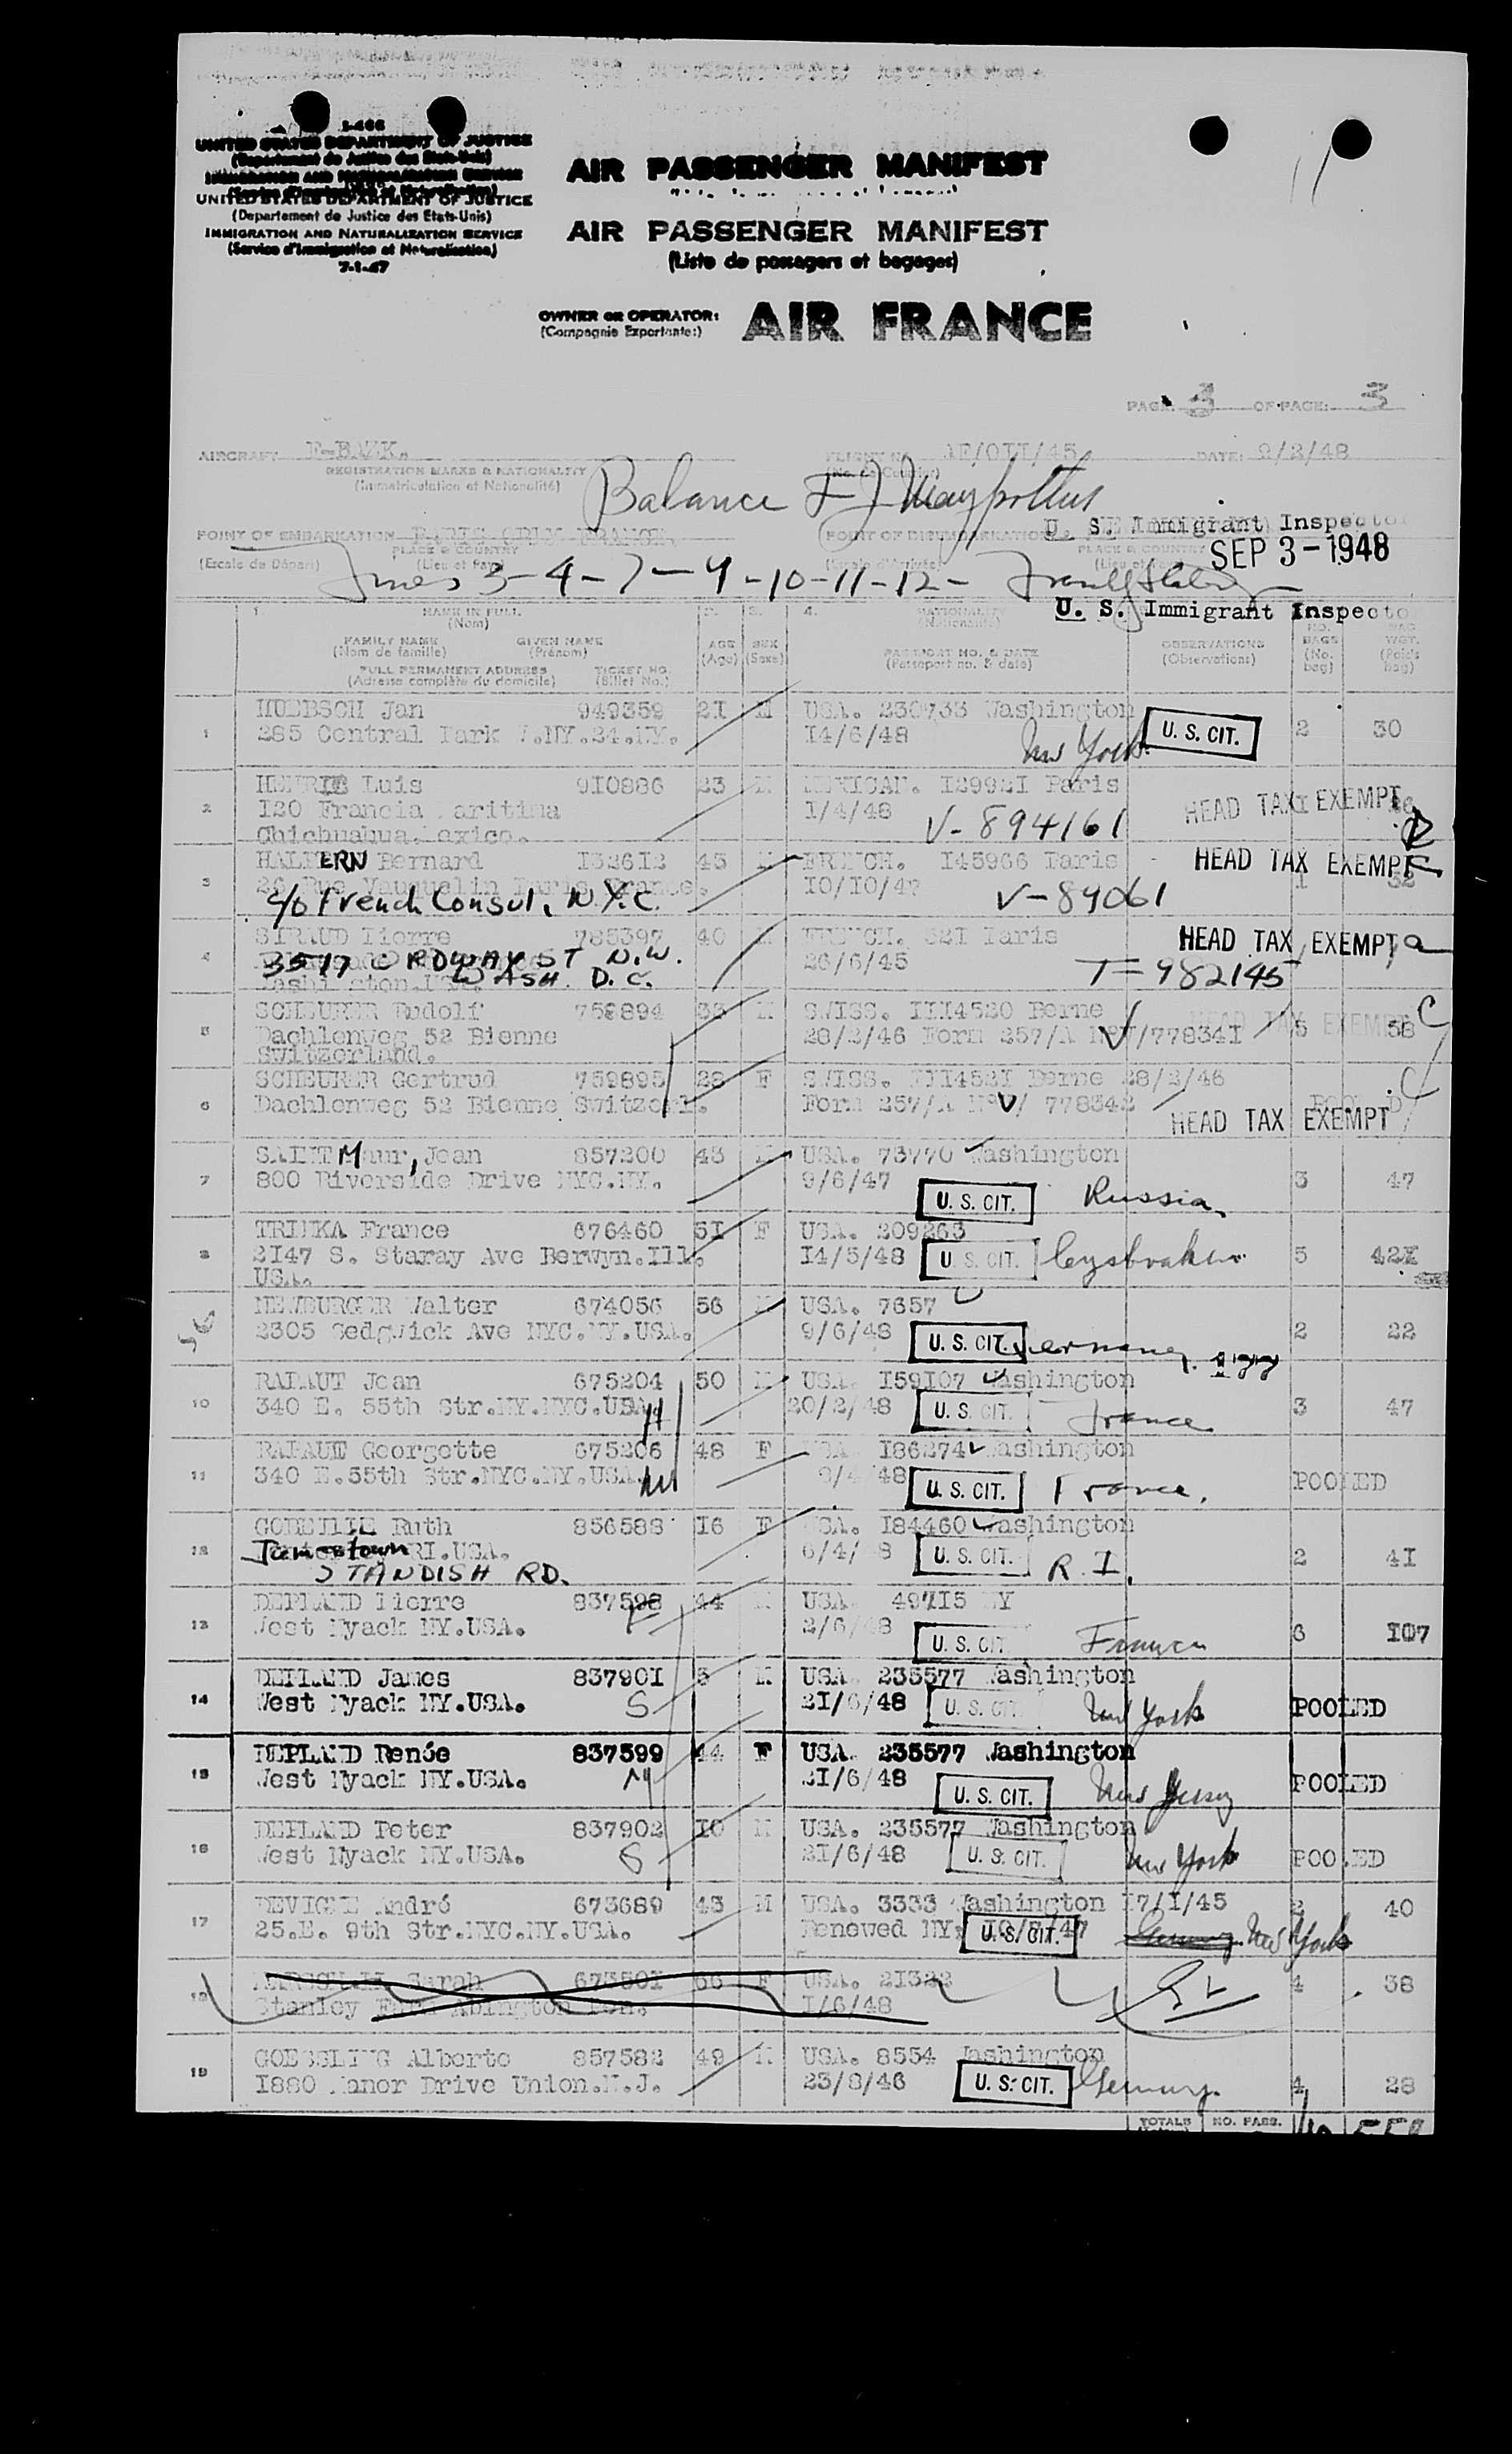 I-466
UNITED STATES DEPARTMENT OF JUSTICE
(Departement de Justice des Etats-Unis)
IMMIGRATION AND NATURALIZATION SERVICE
(Service d'Immigration et Naturalisation)
UNITED STATES DEPARTMENT OF JUSTICE
(Departement de Justice des Etats-Unis)
IMMIGRATION AND NATURALIZATION SERVICE
(Service d'Immigration et Naturalisation)
7-1-47
AIR PASSENGER MANIFEST
AIR PASSENGER MANIFEST
(Liste de passagers et bagages)
OWNER OR OPERATOR:
(Compagnie Exportante:)
AIR FRANCE
PAGE: 3 OF PAGE: 3
AIRCRAFT
REGISTRATION MARKS & NATIONALITY
(Immatriculation et Nationalité)
FLIGHT NO.
DATE: 9/2/48
Balance
U. S. Immigrant Inspector
POINT OF EMBARKATION PARIS ORLY FRANCE.
POINT OF DISEMBARKATION
(Escale de Départ)
PLACE & COUNTRY
(Lieu et Pays)
PLACE & COUNTRY
SEP 3 - 1948
3-4-7-9-10-11-12-
U. S. Immigrant Inspecto
1. NAME IN FULL 2. 3. 4. NATIONALITY
(Nom) (Nationalité)
FAMILY NAME GIVEN NAME AGE SEX PASSPORT NO. & DATE OBSERVATIONS NO. BAGS BAG WGT.
(Nom de famille) (Prénom) (Age) (Sexe) (Passeport no. & date) (Observations) (No. bag) (Poids bag)
FULL PERMANENT ADDRESS TICKET NO.
(Adresse complète du domicile) (Billet No.)
1 HUEBSCH Jan 949359 2I M USA. 230733 Washington U. S. CIT. 2 30
285 Central Park W.NY.24.NY. I4/6/48 New York
2 Luis 9I0886 23 M MEXICAN. I2992I Paris HEAD TAX EXEMPT
I20 Francia Maritima I/4/48 V-894161
Chichuahua.Mexico.
3 HALPERN Bernard I32612 45 M FRENCH. I45966 Paris HEAD TAX EXEMPT 1 32
26 Rue Vauquelin Paris France. I0/I0/47 V-89061
c/o French Consul, N.Y.C.
4 Pierre 785397 40 M FRENCH. 32I Paris HEAD TAX EXEMPT
3517 ORDWAY ST N.W. 26/6/45 T-982145
WASH. D.C.
5 SCHEURER Rudolf 759894 33 M SWISS. III4520 Berne HEAD TAX EXEMPT C
Dachlenweg 52 Bienne 28/2/46 Form 257/A N°V/77834I 5 58
Switzerland.
6 SCHEURER Gertrud 759895 28 F SWISS. III452I Berne 28/2/46 C
Dachlenweg 52 Bienne Switzerl. Form 257/A N°V/ 778342
HEAD TAX EXEMPT
7 SAINT Maur, Jean 857200 43 M USA. 73770 Washington 3 47
800 Riverside Drive NYC.NY. 9/6/47 U. S. CIT. Russia.
8 TRINKA France 676460 5I F USA. 209263
2I47 S. Staray Ave Berwyn.Ill. I4/5/48 U. S. CIT. 5 42
USA.
9 NEWBURGER Walter 674056 56 M USA. 7657
2305 Sedgwick Ave NYC.NY.USA. 9/6/48 U. S. CIT. Germany. 2 22
10 RAPAUT Jean 675204 50 M USA. I59I07 Washington
340 E. 55th Str.NY.NYC.USA. M 20/2/48 U. S. CIT. France 3 47
11 RAPAUT Georgette 675206 48 F USA. I86274 Washington
340 E.55th Str.NYC.NY.USA. M 8/4/48 U. S. CIT. France. POOLED
12 Ruth 856588 I6 F USA. I84460 Washington
Jamestown RI.USA. 6/4/48 U. S. CIT. R.I. 2 4I
STANDISH RD.
13 DEPLAND Pierre 837598 44 M USA. NY
West Nyack NY.USA. F 2/6/48 U. S. CIT. France 6 I07
14 DEPLAND James 83790I 5 M USA. 235577 Washington
West Nyack NY.USA. S 2I/6/48 U. S. CIT. New York POOLED
15 DEPLAND Renée 837599 44 F USA. 235577 Washington
West Nyack NY.USA. M 2I/6/48 U. S. CIT. New Jersey POOLED
16 DEPLAND Peter 837902 I0 M USA. 235577 Washington
West Nyack NY.USA. S 2I/6/48 U. S. CIT. New York POOLED
17 DEVIGNE André 673689 43 M USA. 3333 Washington I7/I/45 2 40
25.E. 9th Str.NYC.NY.USA. Renewed NY. U. S. CIT. New York
18 Sarah 67350I 66 F USA. 21322 4 38
Stanley Farm Abington Pen. I/6/48
19 GOESSLING Alberto 857582 49 M USA. 8554 Washington
I880 Manor Drive Union.N.J. 23/8/46 U. S. CIT. Germany. 4 28
TOTALS NO. PASS.